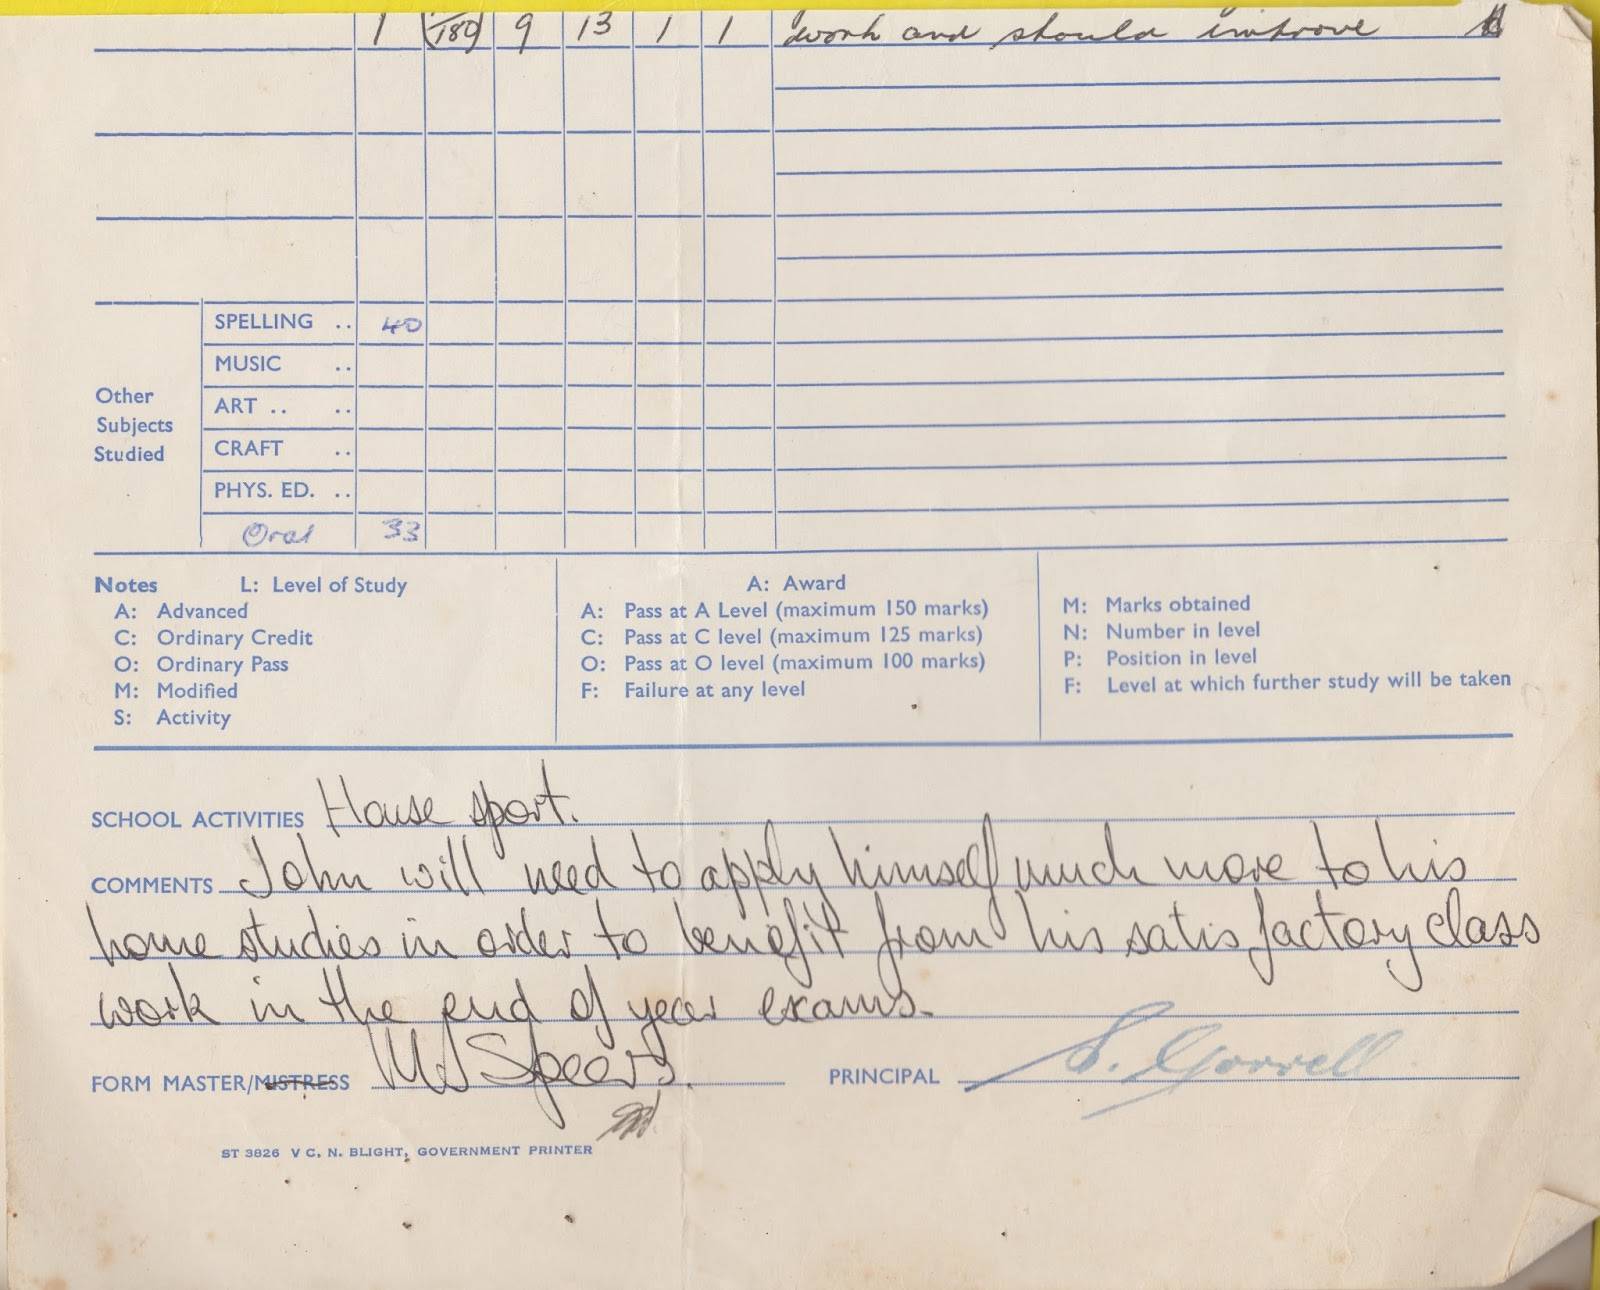 1 (/180) 9 13 1 1 work and should improve
SPELLING .. 40
MUSIC ..
Other Subjects Studied
ART .. ..
CRAFT ..
PHYS. ED. ..
Oral 33
Notes L: Level of Study
A: Advanced
C: Ordinary Credit
O: Ordinary Pass
M: Modified
S: Activity
A: Award
A: Pass at A Level (maximum 150 marks)
C: Pass at C level (maximum 125 marks)
O: Pass at O level (maximum 100 marks)
F: Failure at any level
M: Marks obtained
N: Number in level
P: Position in level
F: Level at which further study will be taken
SCHOOL ACTIVITIES House sport.
COMMENTS John will need to apply himself much more to his
home studies in order to benefit from his satisfactory class
work in the end of year exams.
FORM MASTER/MISTRESS W Spears. PRINCIPAL S. Gorrell
ST 3826 V C. N. BLIGHT, GOVERNMENT PRINTER